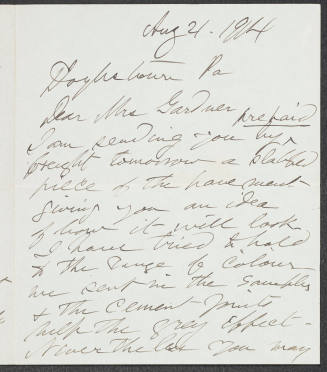 Aug 21. 1914
Doylestown Pa
Dear Mrs Gardner
prepaid
I am sending you by
freight tomorrow a slabbed
piece of the pavement
giving you an idea
of how it will look
I have tried to hold
to the range of colour
we sent in the samples
& the cement joints
help the grey effect -
Nevertheless you may